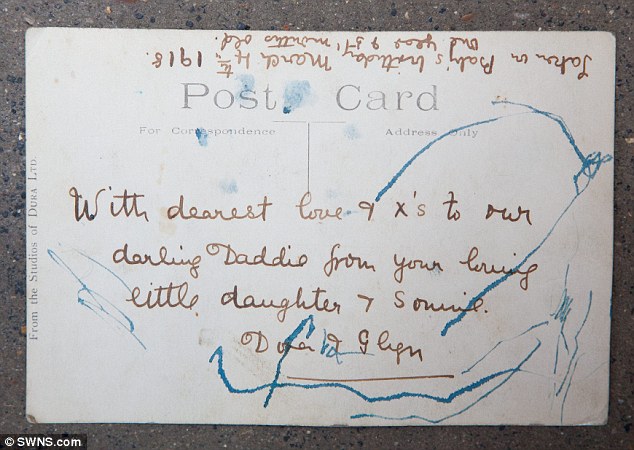 Taken on Baby's birthday March 4th, 1918.
One year & months old.
Post Card
For Correspondence
Address Only
From the Studios of DURA LTD.
With dearest love & x's to our
darling Daddie from your loving
little daughter & Sonnie.
Dora & Glyn
© SWNS.com